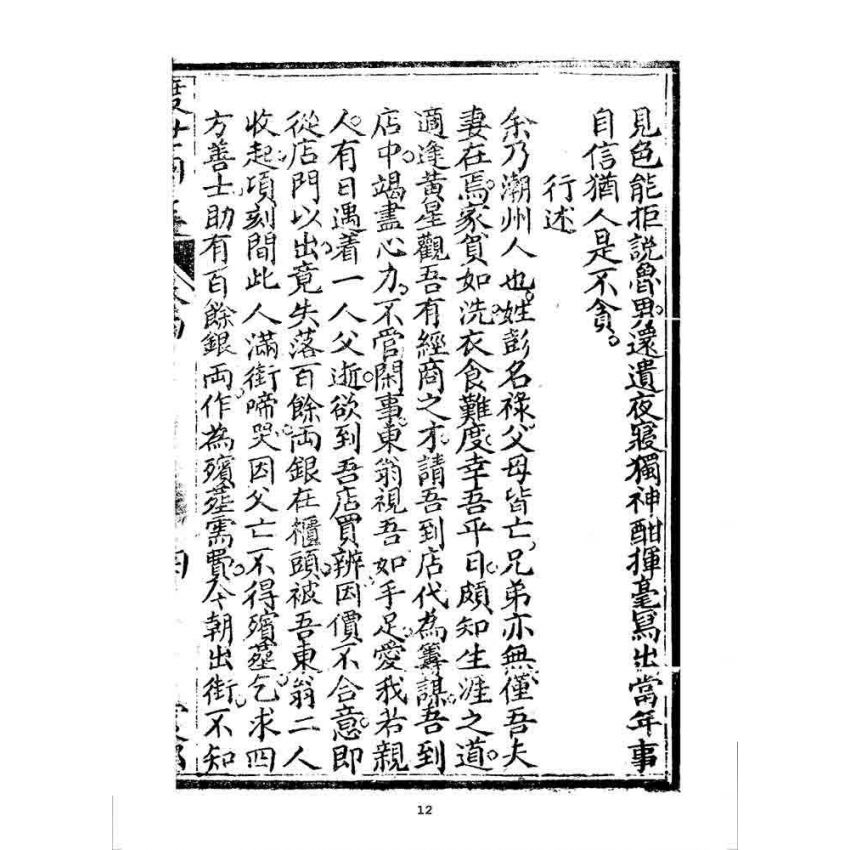 見色能拒說魯男。還遺夜寢獨神酣揮毫寫出當年事
自信猶人是不貪。
行述
余乃潮州人也。姓彭名祿。父母皆亡。兄弟亦無。僅吾夫
妻在焉。家貧如洗。衣食難度。幸吾平日。頗知生涯之道。
適逢黃星觀吾有經商之才。請吾到店代為籌謀。吾到
店中。竭盡心力。不管閑事。東翁視吾如手足。愛我若親
人。有日遇着一人父逝。欲到吾店買辦。因價不合意。即
從店門以出。竟失落百餘両銀在櫃頭。被吾東翁二人
收起。項刻間此人滿街啼哭。因父亡不得殯塟。乞求四
方善士助有百餘銀両。作為殯塟需費。今朝出街。不知
12